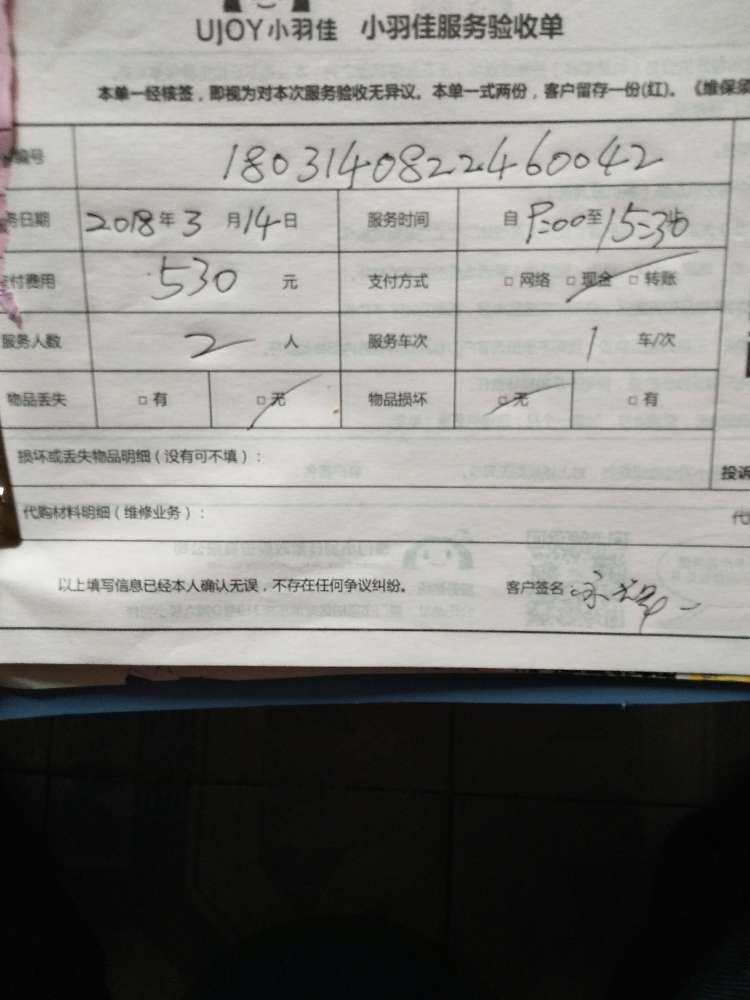 UJOY小羽佳 小羽佳服务验收单
本单一经核签，即视为对本次服务验收无异议。本单一式两份，客户留存一份(红)。《维保须
编号 180314082246 0042
务日期 2018年3月14日 服务时间 自 9:00至15:30止
付费用 530 元 支付方式 □网络 □现金 □转账
服务人数 2 人 服务车次 1 车/次
物品丢失 □有 □无 物品损坏 □无 □有
损坏或丢失物品明细（没有可不填）： 投诉
代购材料明细（维修业务）： 代
以上填写信息已经本人确认无误，不存在任何争议纠纷。 客户签名：